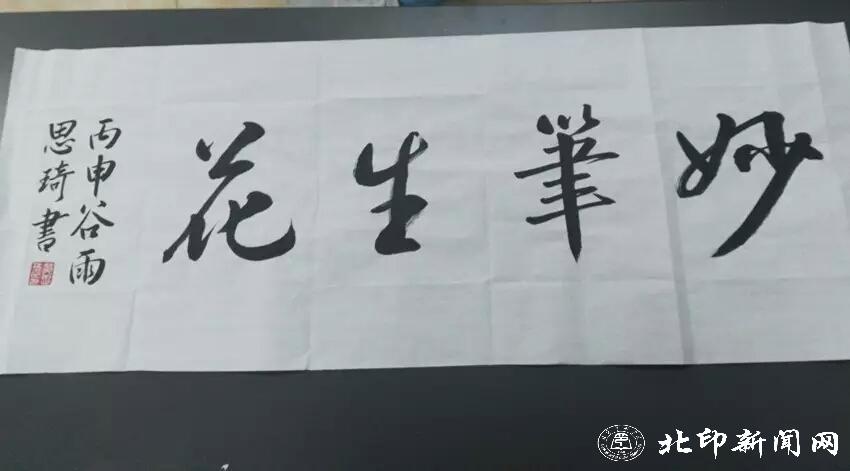 妙筆生花
丙申谷雨
思琦書
北印新闻网